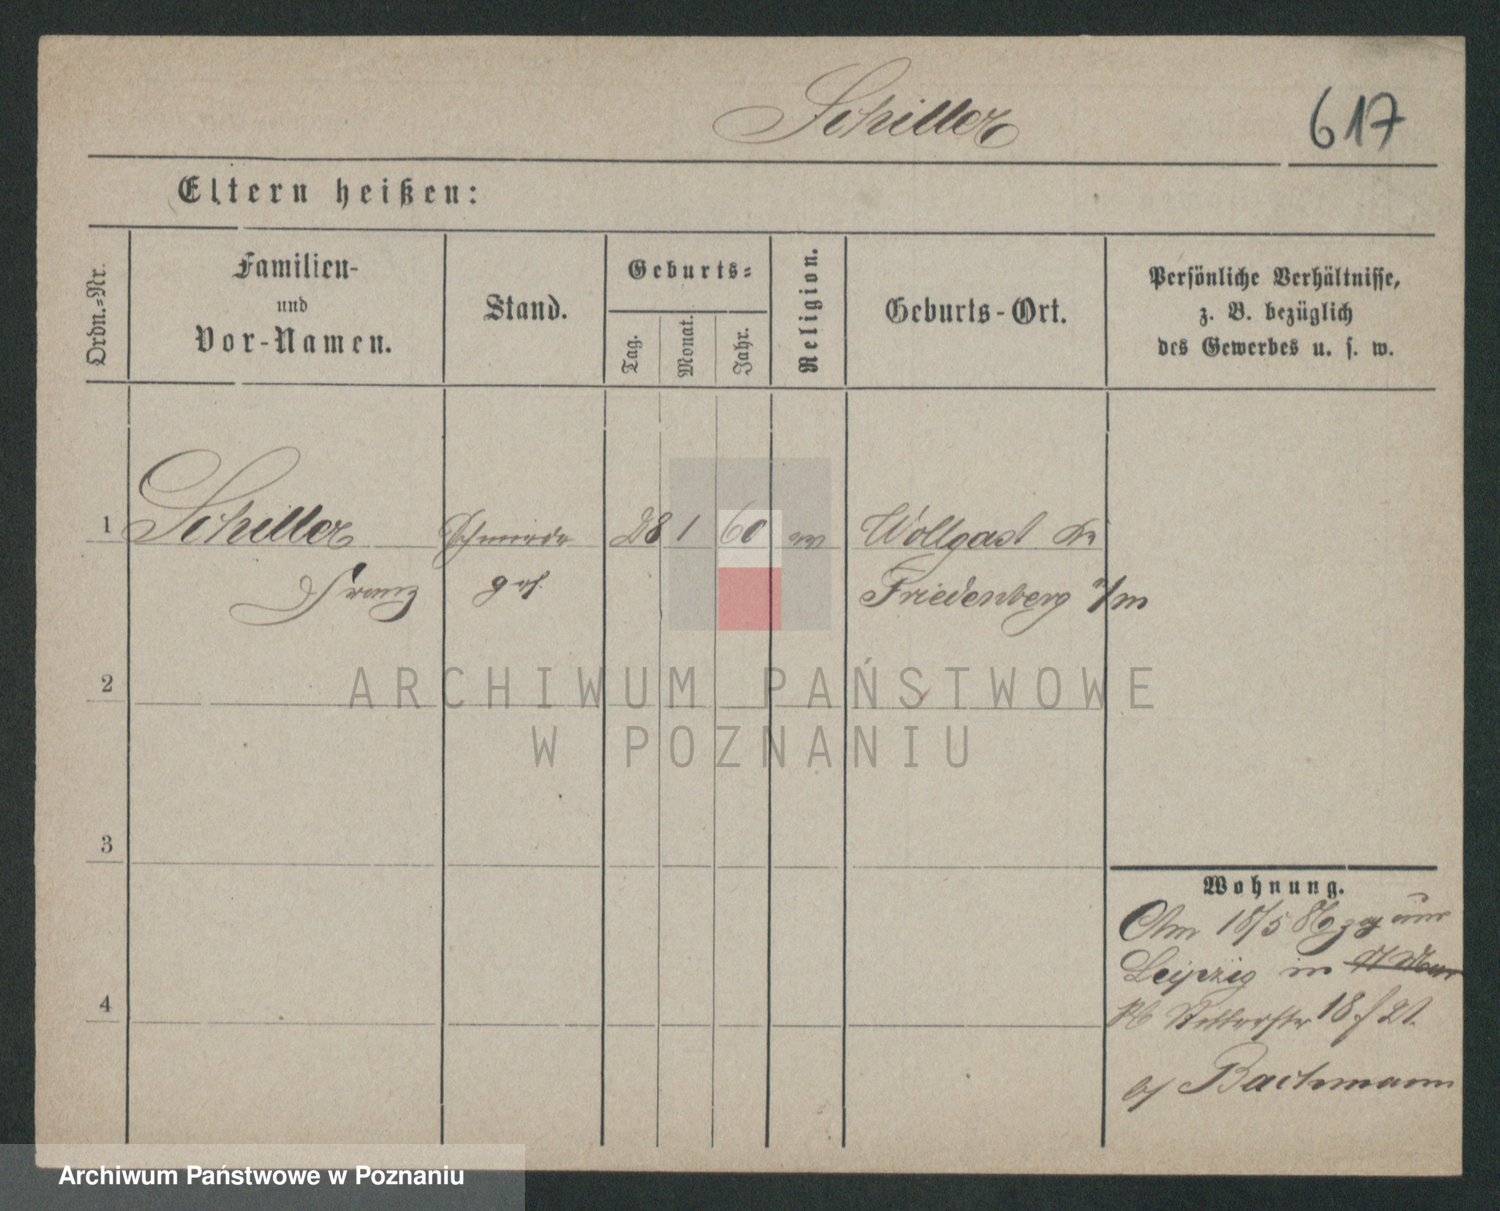 Schiller
617
Eltern heißen:
Ordn.-Nr.
Familien-
und
Vor-Namen.
Stand.
Geburts-
Tag.
Monat.
Jahr.
Religion.
Geburts-Ort.
Persönliche Verhältnisse,
z. B. bezüglich
des Gewerbes u. s. w.
1 Schiller Schmiede 28 1 60 ev Wollgast
Franz ges. Friedenberg n/m
2
3
4
Wohnung.
Am 18/5 86 zog
Leipzig in
18 f 21.
b/ Bachmann
ARCHIWUM PAŃSTWOWE
W POZNANIU
Archiwum Państwowe w Poznaniu